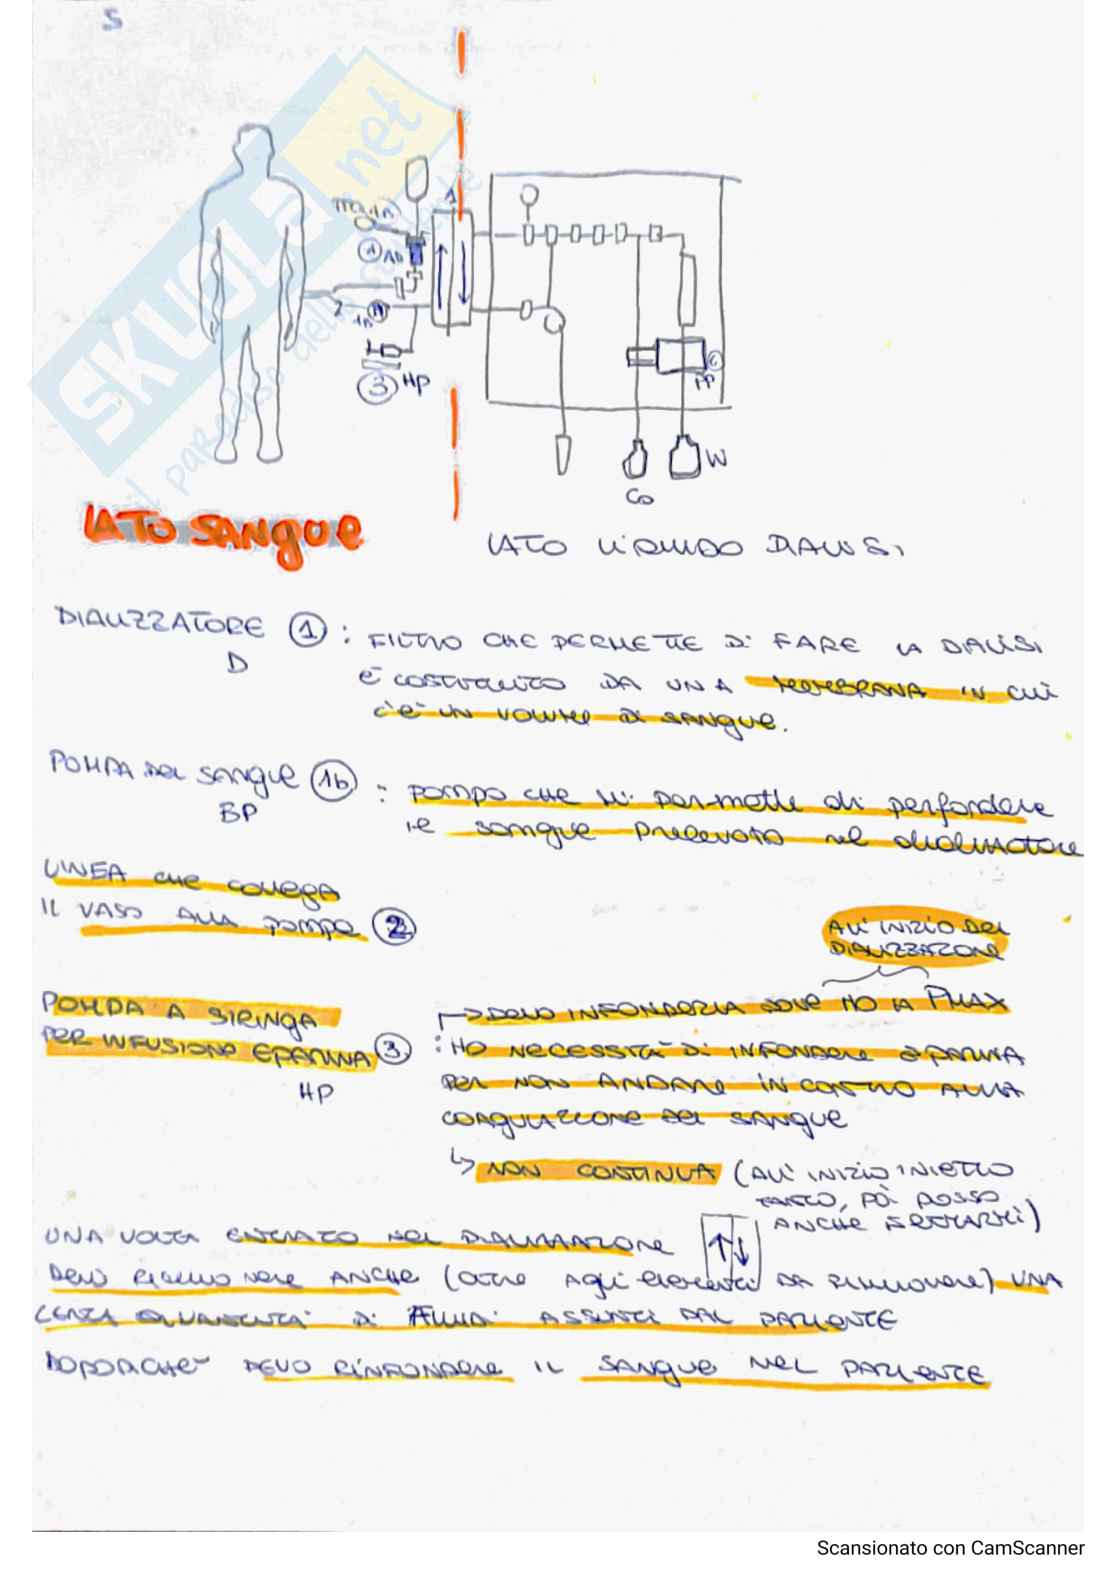 5
1
1b
AD
2
1a
3 HP
PP
W
Co
LATO SANGUE
LATO LIQUIDO DIALISI
DIALIZZATORE 1 : FILTRO CHE PERMETTE DI FARE LA DIALISI
D
È COSTITUITO DA UNA MEMBRANA IN CUI
C'È UN VOLUME DI SANGUE.
POMPA DEL SANGUE 1b : POMPA CHE MI PERMETTE DI PERFONDERE
BP
IL SANGUE PRELEVATO NEL DIALIZZATORE
LINEA CHE COLLEGA
IL VASO ALLA POMPA 2
ALL'INIZIO DEL
DIALIZZATORE
POMPA A SIRINGA
→ DEVO INFONDERLA DOVE HO LA PMAX
PER INFUSIONE EPARINA 3 : HO NECESSITÀ DI INFONDERE EPARINA
HP
PER NON ANDARE IN CONTRO ALLA
COAGULAZIONE DEL SANGUE
↳ NON CONTINUA (ALL'INIZIO INIETTO
TANTO, POI POSSO
ANCHE FERMARMI)
UNA VOLTA ENTRATO NEL DIALIZZATORE
DEVO RIMUOVERE ANCHE (OLTRE AGLI ELEMENTI DA RIMUOVERE) UNA
CERTA QUANTITÀ DI FLUIDI ASSUNTI DAL PAZIENTE
DOPODICHÉ DEVO RINFONDERE IL SANGUE NEL PAZIENTE
SKUOLA.net
il paradiso dello studente
Scansionato con CamScanner